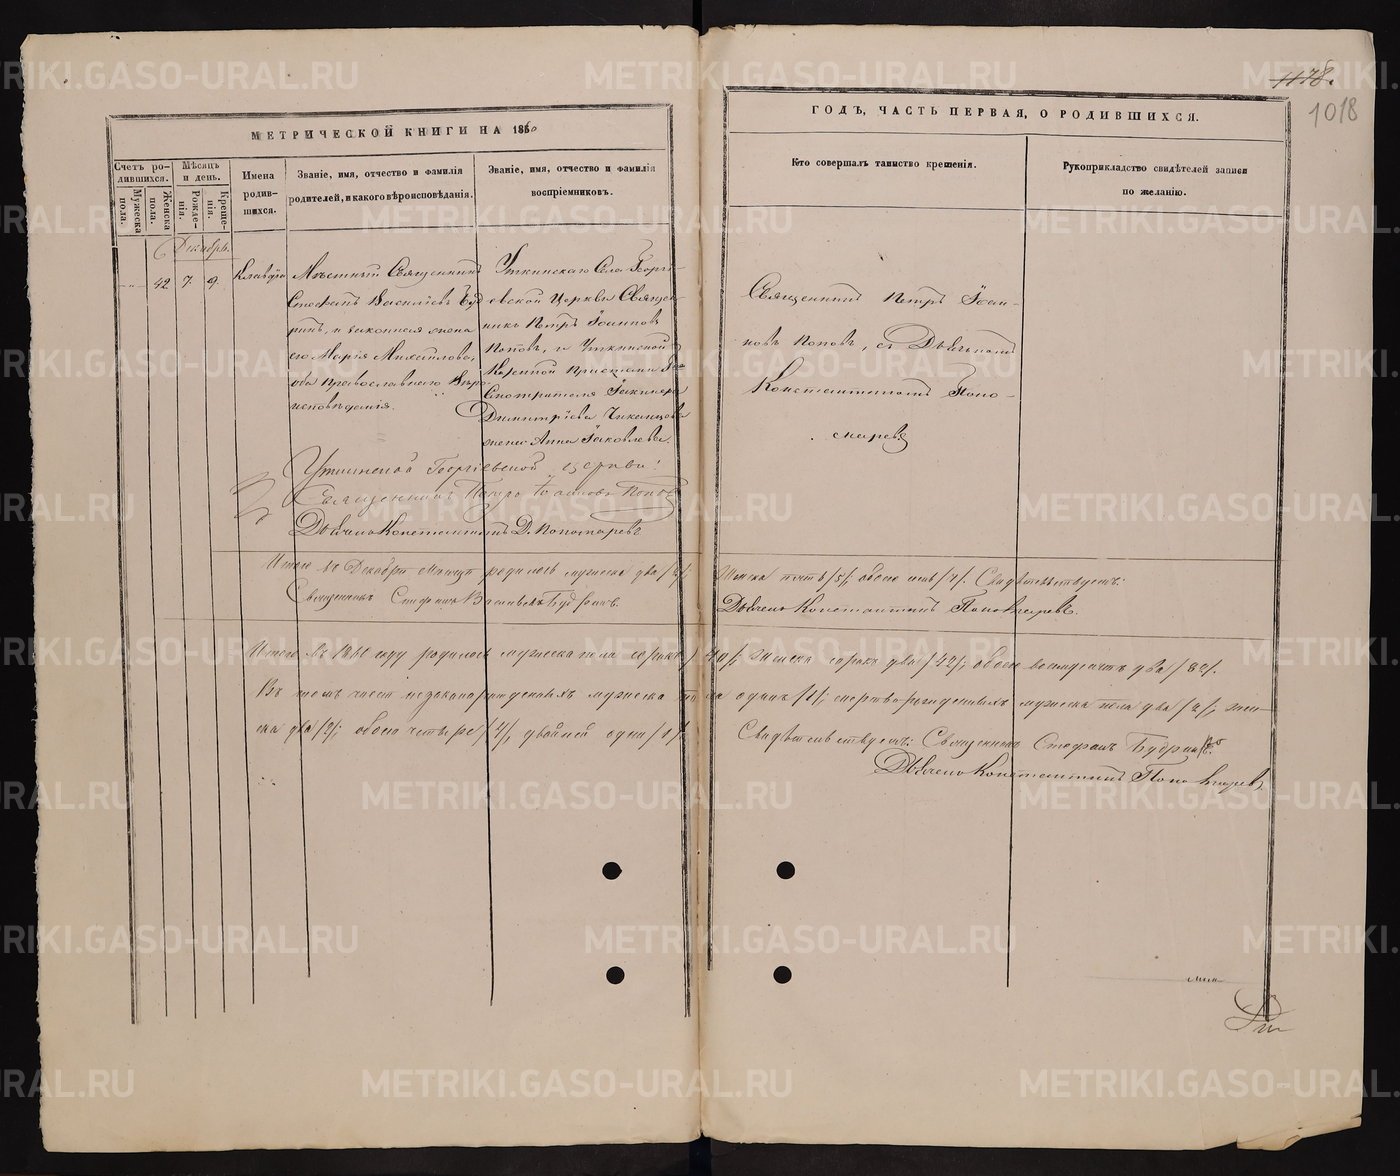 1178.
1018
МЕТРИЧЕСКОЙ КНИГИ НА 1860
ГОДЪ, ЧАСТЬ ПЕРВАЯ, О РОДИВШИХСЯ.
Счетъ родившихся.
Мужеска пола.
Женска пола.
Мѣсяцъ и день.
Рожденія.
Крещенія.
Имена родившихся.
Званіе, имя, отчество и фамилія родителей, и какого вѣроисповѣданія.
Званіе, имя, отчество и фамилія воспріемниковъ.
Кто совершалъ таинство крещенія.
Рукоприкладство свидѣтелей записи по желанію.
Декабрь.
42 7. 9. Клавдія
Мѣстный Священникъ
Стефанъ Васильевъ Буд
ринъ, и законная жена
его Марія Михайлова,
оба православнаго Вѣро
исповѣданія.
Уткинскаго Села Георгі
евской Церкви Священ
никъ Петръ Іоанновъ
Поповъ, и Уткинской
Казенной Пристани
Смотрителя
Димитріева
жена Анна Яковлева.
Священникъ Петръ Іоан-
новъ Поповъ, съ Дьячкомъ
Константиномъ Поно-
маревъ
Уткинской Георгіевской церкви:
Священникъ Петръ Іоанновъ Поповъ
Дьячекъ Константинъ Д. Пономаревъ
Итого въ Декабрѣ Мѣсяцѣ родилось мужеска два /2/; Женска пять /5/, обоего семь /7/. Свидѣтельствуемъ:
Священникъ Стефанъ Васильевъ Будринъ.
Дьячекъ Константинъ Пономаревъ.
Итого въ 1860 году родилось мужеска пола сорокъ /40/; Женска сорокъ два /42/; обоего восемдесятъ два /82/.
Въ томъ числѣ незаконорожденныхъ мужеска пола одинъ /1/; мертворожденныхъ мужеска пола два /2/, жен-
ска два /2/; обоего четыре /4/, двойней одни /1/.
Свидѣтельствуемъ: Священникъ Стефанъ Будринъ.
Дьячекъ Константинъ Пономаревъ
METRIKI.GASO-URAL.RU